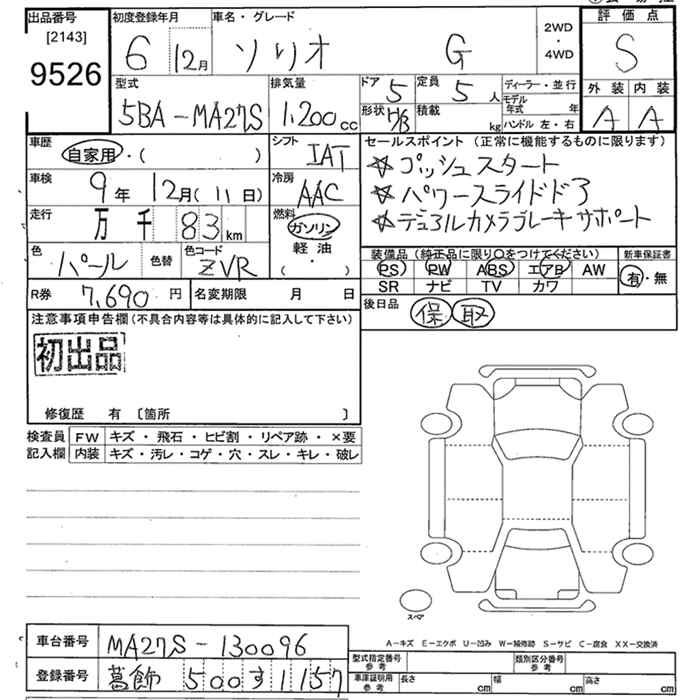 出品番号
[2143]
9526
初度登録年月
6 12月
車名・グレード
ソリオ G
2WD
・
4WD
評価点
S
外装 内装
A A
型式
5BA-MA27S
排気量
1,200cc
ドア 5
定員 5人
ディーラー・並行
モデル年式 年
ハンドル 左・右
形状 H/B
積載 kg
車歴
自家用・( )
シフト
IAT
セールスポイント (正常に機能するものに限ります)
☆プッシュスタート
☆パワースライドドア
☆デュアルカメラブレーキサポート
車検
9年 12月(11日)
冷房
AAC
走行
万 千 83km
燃料
ガソリン
軽油
・
( )
色
パール
色替
色コード
ZVR
装備品 (純正品に限り○をつけてください)
PS PW ABS エアB AW
SR ナビ TV カワ
新車保証書
有・無
R券 7,690円
名変期限 月 日
後日品
保 取
注意事項申告欄 (不具合内容等は具体的に記入して下さい)
初出品
修復歴 有 〔箇所 〕
検査員
記入欄
FW キズ・飛石・ヒビ割・リペア跡・×要
内装 キズ・汚レ・コゲ・穴・スレ・キレ・破レ
スペア
A-キズ E-エクボ U-凹み W-補修跡 S-サビ C-腐食 XX-交換済
車台番号 MA27S-130096
登録番号 葛飾 500 す 1157
型式指定番号
参考
類別区分番号
参考
車庫証明用
参考
長さ cm 幅 cm 高さ cm